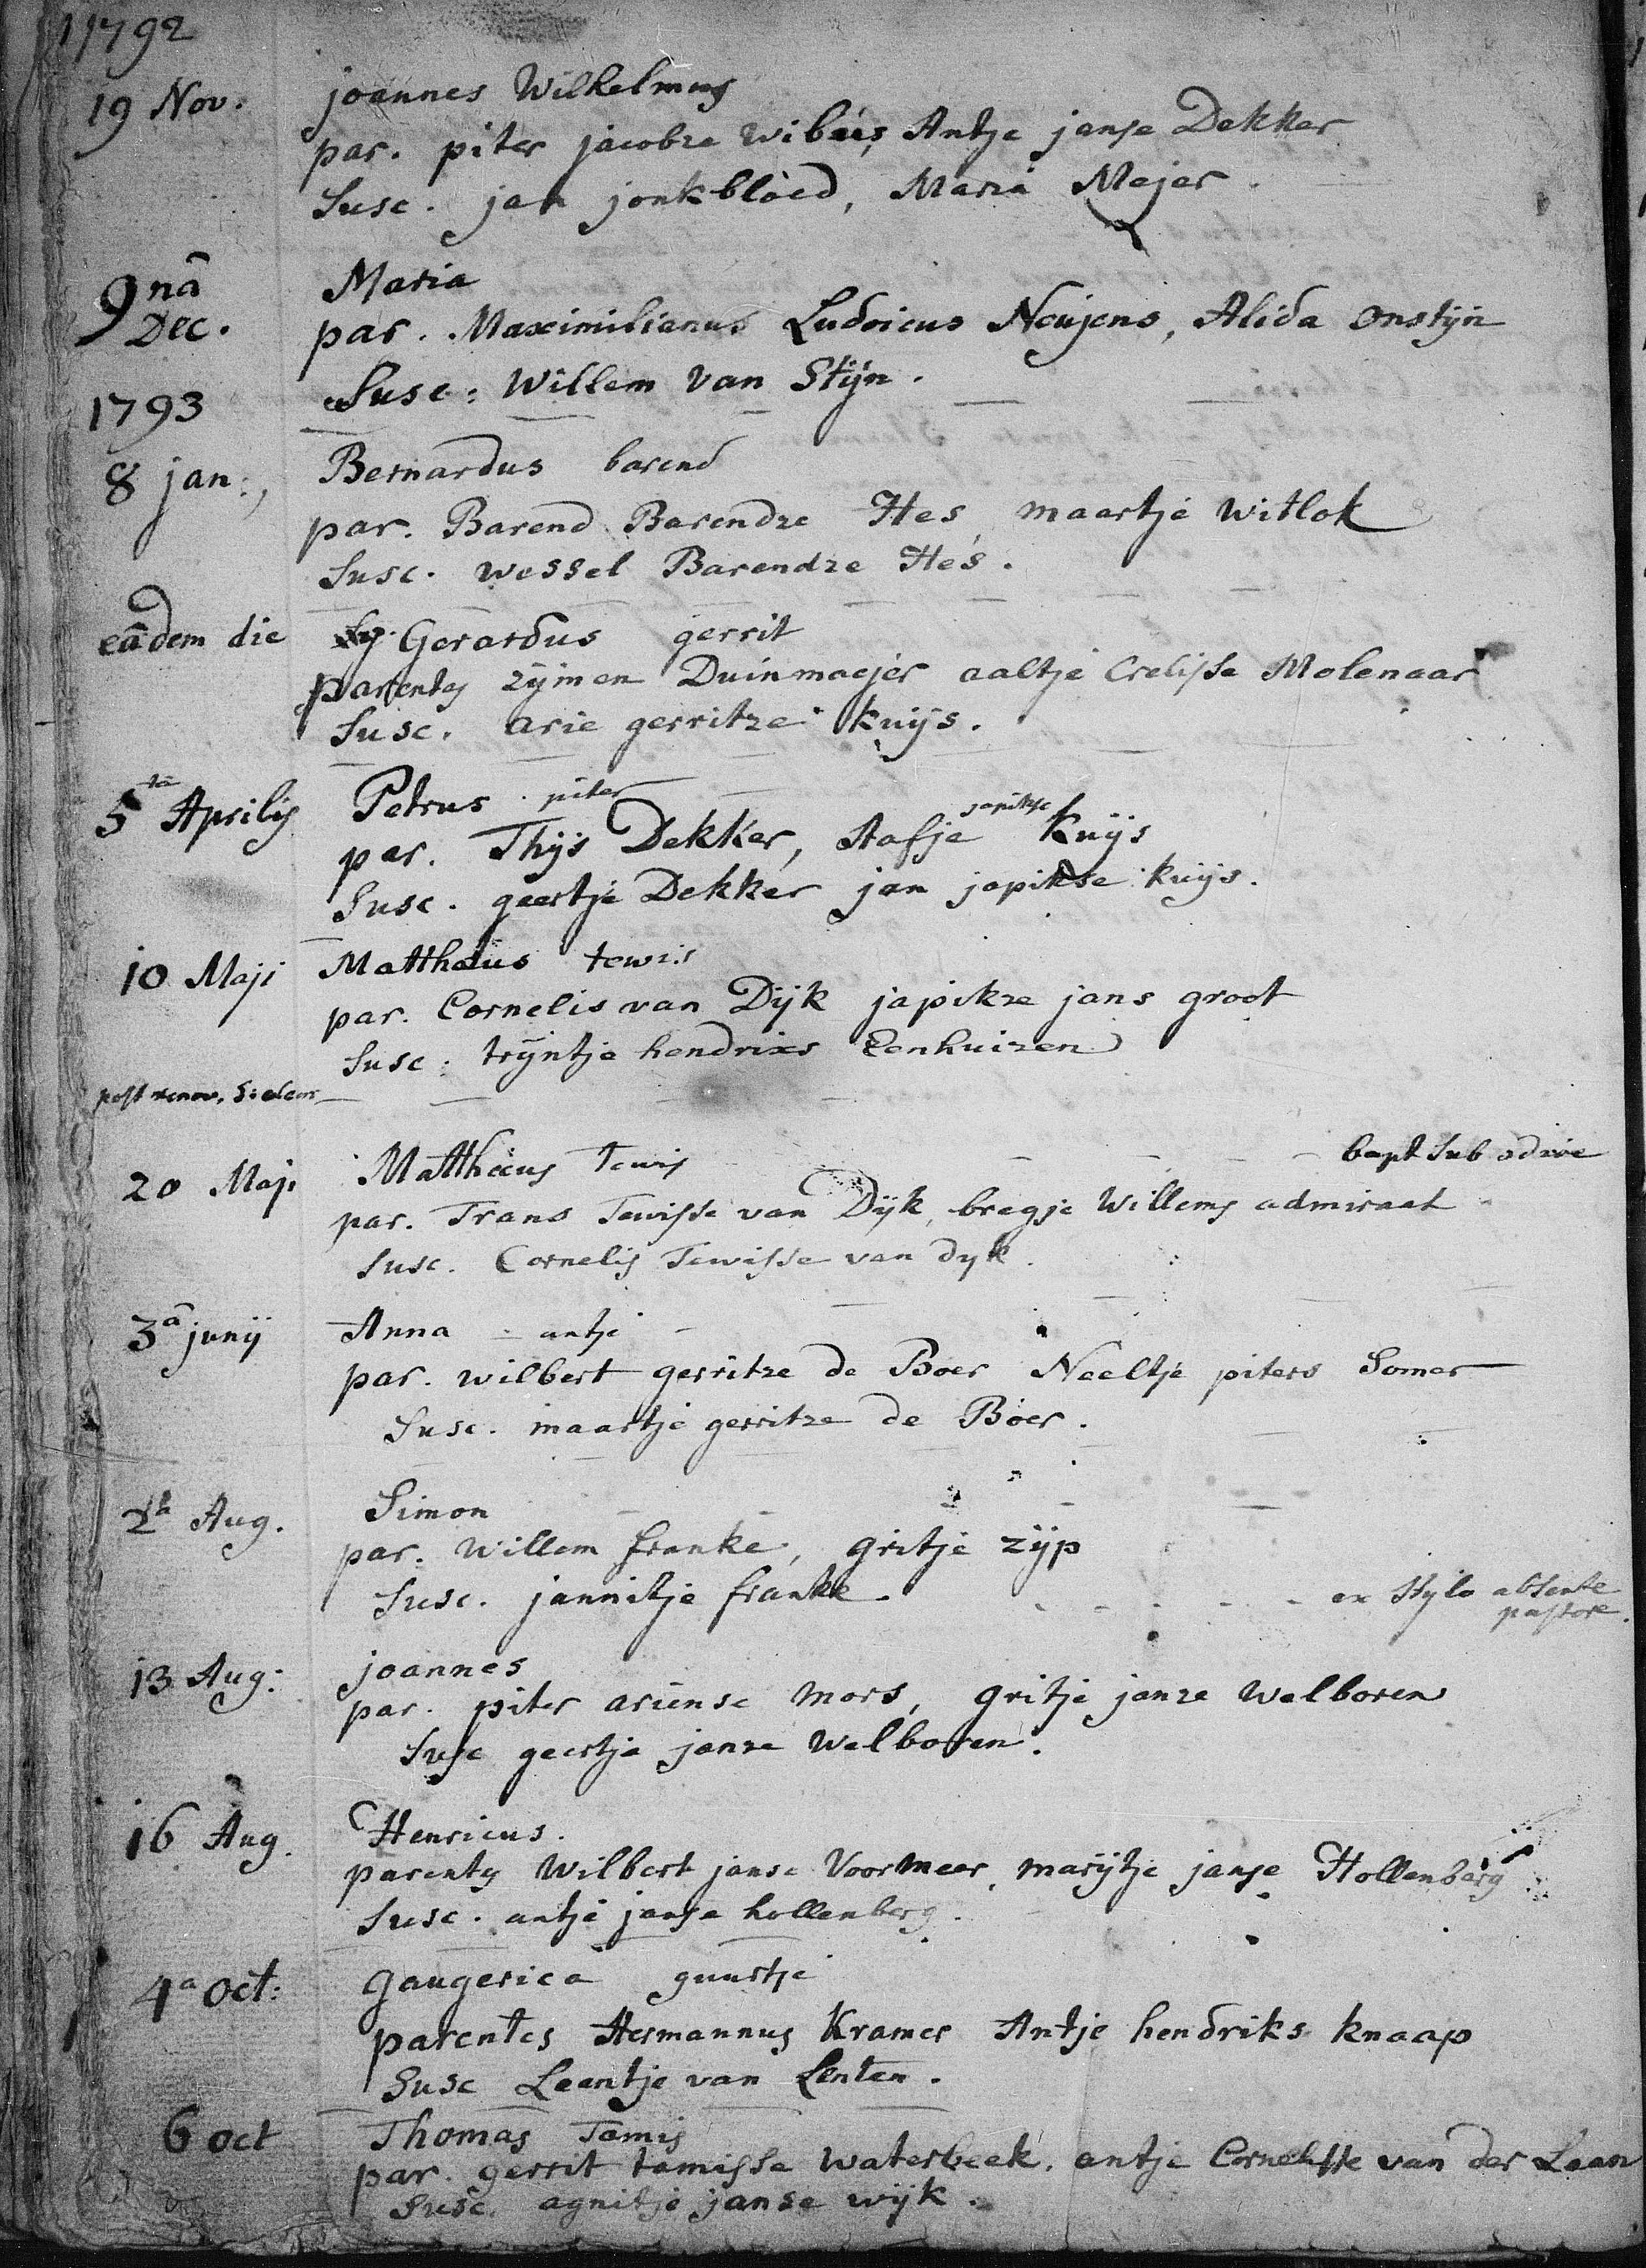 1792
19 Nov. joannes Wilhelmus
par. piter jacobze wibies, Antje janse Dekker
Susc. jan jonkbloed, Maria Mejer.
9nâ Dec. Maria
par. Maximilianus Ludoicus Neujens, Alida Onstijn
Susc: Willem Van Stijn.
1793
8 jan:, Bernardus barend
par. Barend Barendze Hes maartje witlok
Susc. wessel Barendze Hes.
eâdem die Gerardus gerrit
parentes zijmen Duinmaejer aaltje Crelisse Molenaar
Susc. arie gerritze kuijs.
5ta Aprilis Petrus piter
par. Thijs Dekker, Aafje japikse Kuijs
Susc. geertje Dekker jan japikse kuijs.
10 Maji Matthæus tewis
par. Cornelis van Dijk japikze jans groot
Susc: trijntje hendrixs Eenhuizen
post renov.
20 Maji Matthæus Tewis bapt sub
par. Frans Tewisse van Dijk, bregje Willems admiraal
Susc. Cornelis Tewisse van dyk.
3â junij Anna - antje -
par. wilbert gerritze de Boer Neeltje piters Somer
Susc. maartje gerritze de Boer.
2da Aug. Simon
par. Willem franke, gritje zijp
Susc. jannitje franke. - - - - - - ex Hylo absente
pastore.
13 Aug: joannes
par. piter ariense Mors, gritje janze Welboren
Susc geertje janze Welboren.
16 Aug. Henricus.
parentes Wilbert janse Voormeer, marijtje janse Hollenberg
Susc. antje janse hollenberg.
4a Oct: Gaugerica guurtje
parentes Hermannus Kramer Antje hendriks knaap
Susc Leentje van Lenten.
6 oct Thomas Tamis
par. gerrit tamisse waterbeek. antje Cornelisse van der Laan
Susc. agnitje janse wijk.